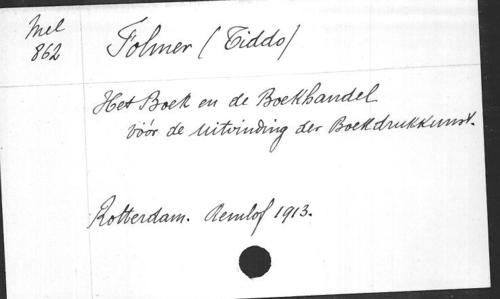 Mel
862
Folmer (Tiddo)
Het Boek en de Boekhandel
vóór de uitvinding der Boekdrukkunst.
Rotterdam. 1913.